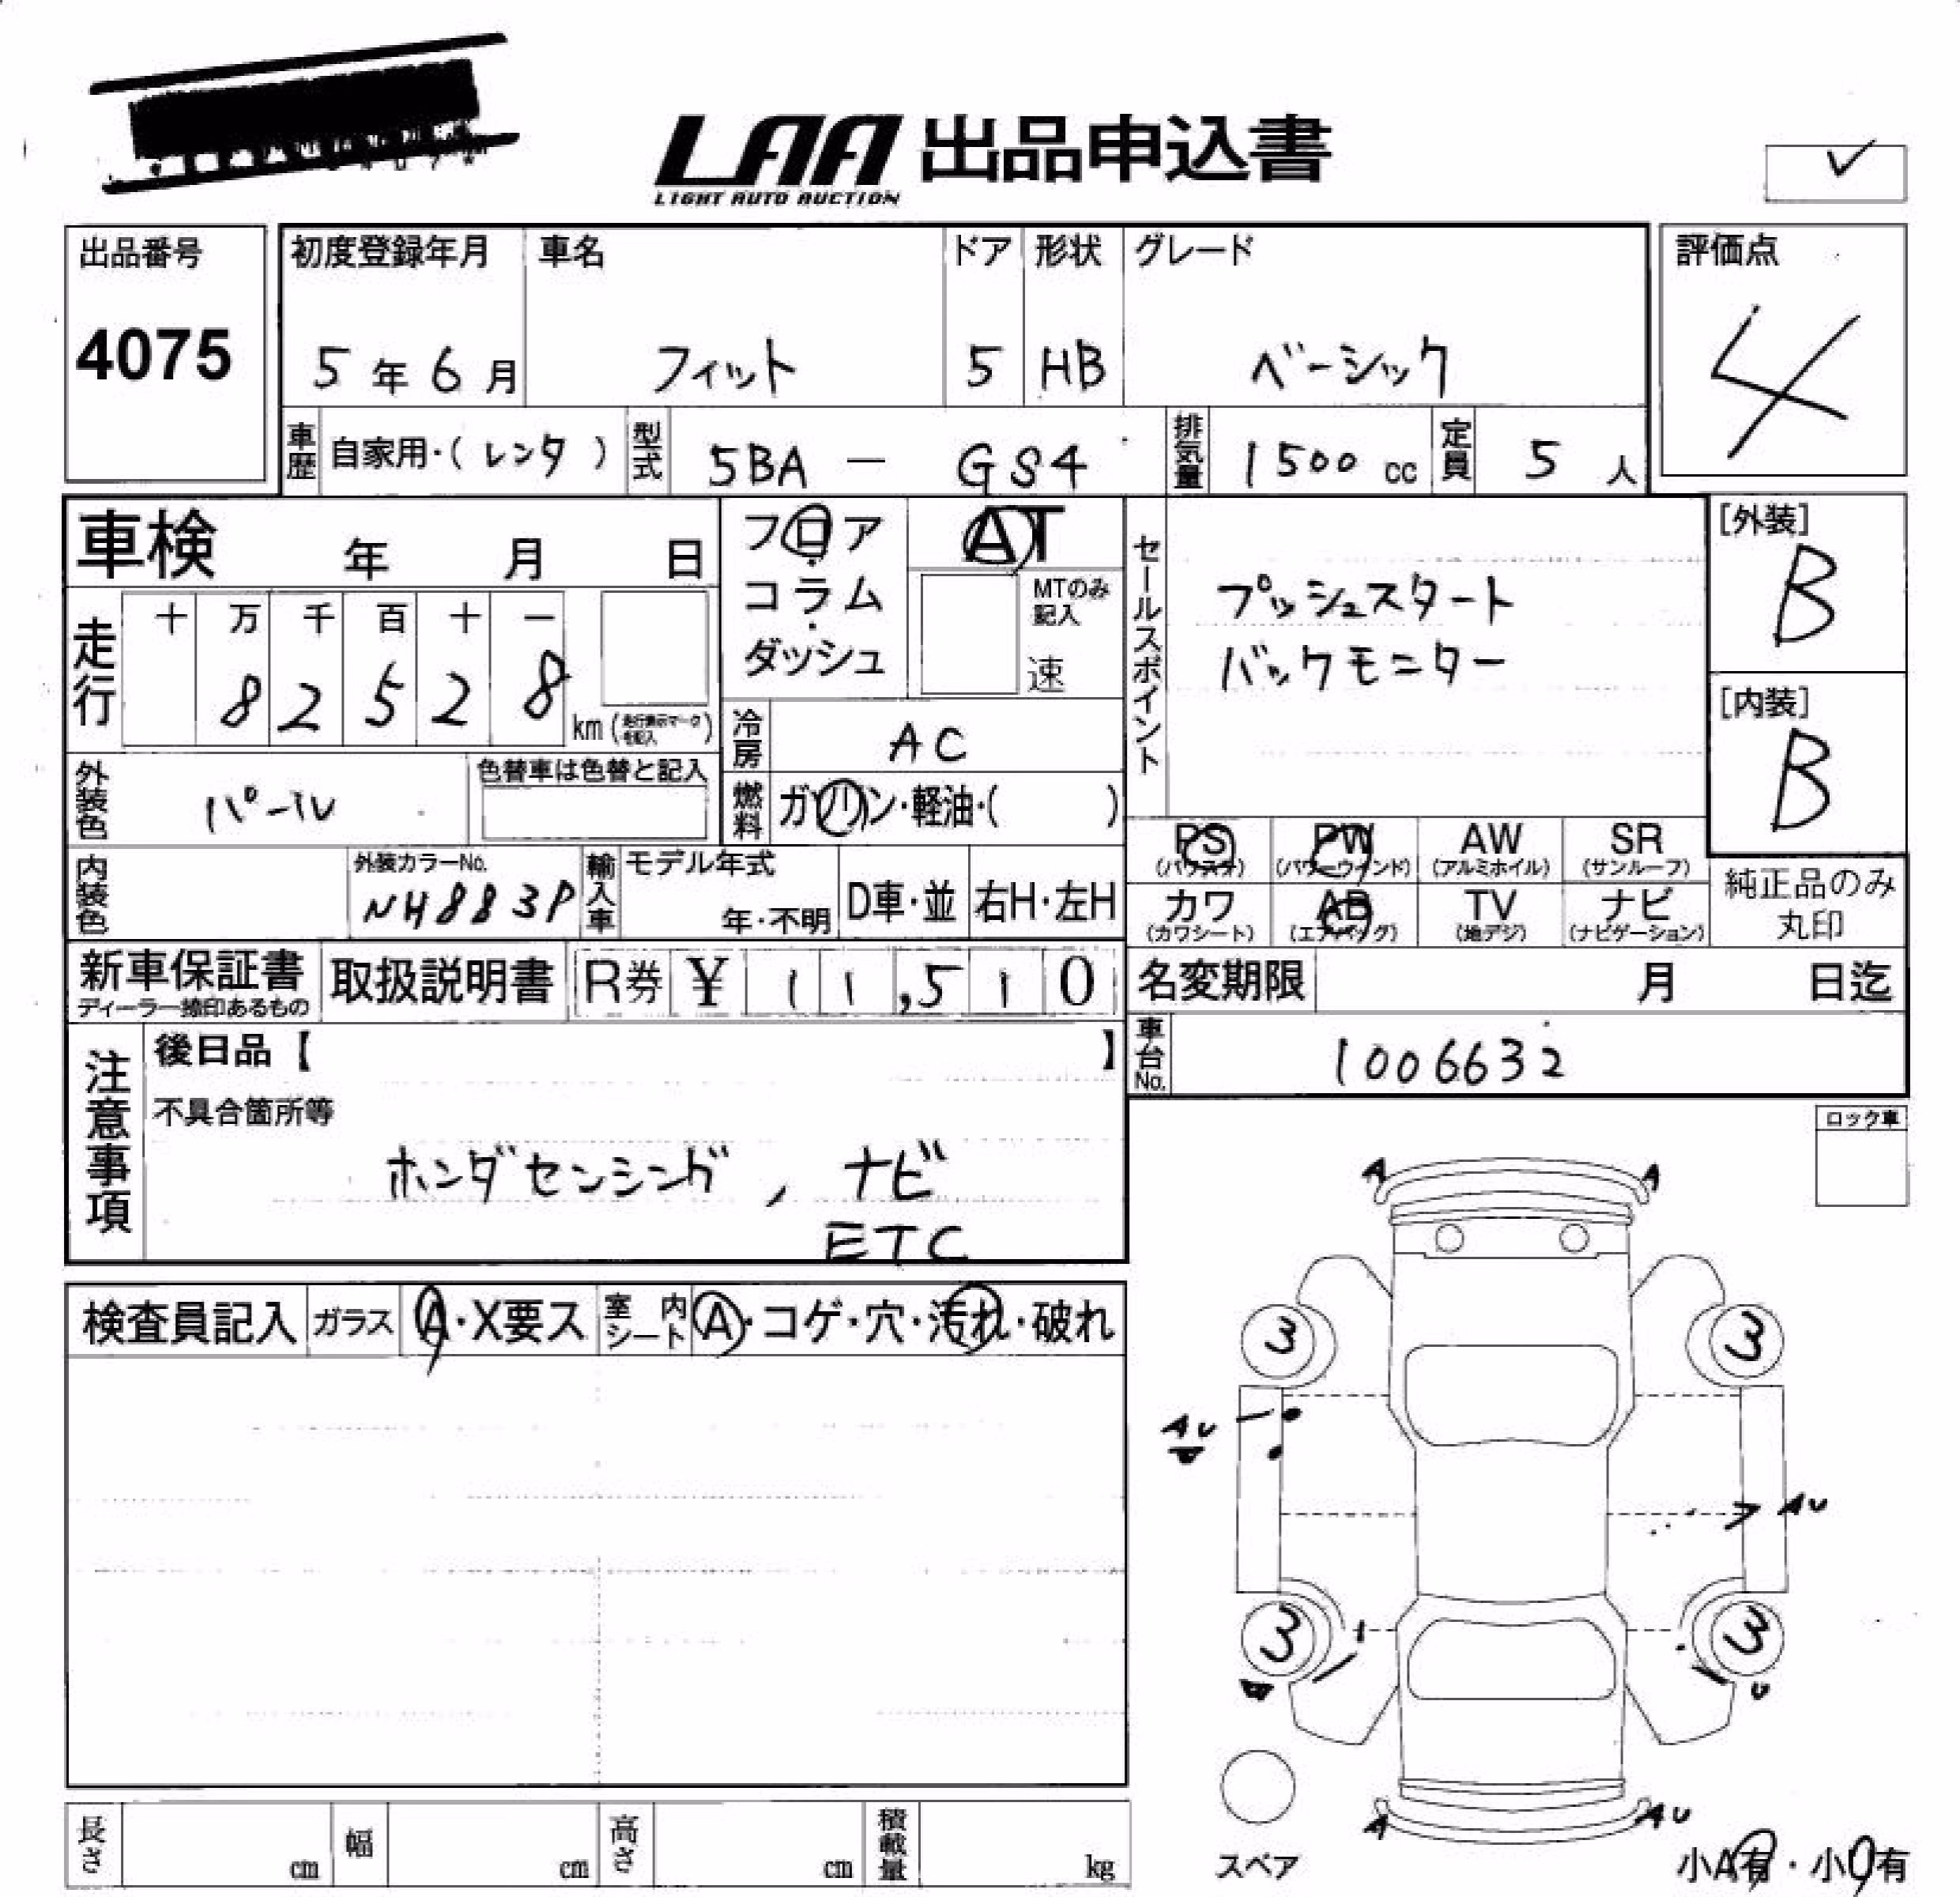 LAA 出品申込書
LIGHT AUTO AUCTION
出品番号
4075
初度登録年月 車名 ドア 形状 グレード
5年6月 フィット 5 HB ベーシック
評価点
4
車歴 自家用・(レンタ) 型式 5BA - GS4 排気量 1500cc 定員 5人
車検 年 月 日
フロア
コラム
ダッシュ
AT
MTのみ
記入
速
セールスポイント
プッシュスタート
バックモニター
[外装]
B
[内装]
B
走行 十 万 千 百 十 一
8 2 5 2 8 km(走行表示マークを記入)
冷房 AC
燃料 ガソリン・軽油・( )
外装色 パール 色替車は色替と記入
PS PW AW SR
(パワステ) (パワーウィンド) (アルミホイル) (サンルーフ)
カワ AB TV ナビ
(カワシート) (エアバッグ) (地デジ) (ナビゲーション)
純正品のみ
丸印
内装色 外装カラーNo. NH883P 輸入車 モデル年式 年・不明 D車・並 右H・左H
新車保証書 取扱説明書 R券 ¥ 11,510
ディーラー捺印あるもの
名変期限 月 日迄
車台No. 1006632
注意事項
後日品【 】
不具合箇所等
ホンダセンシング, ナビ
ETC
ロック車
検査員記入 ガラス A・X要ス 室内シート A・コゲ・穴・汚れ・破れ
A A
3 3
AU
AU
3 3
U
A AU
スペア
小A有・小U有
長さ cm 幅 cm 高さ cm 積載量 kg